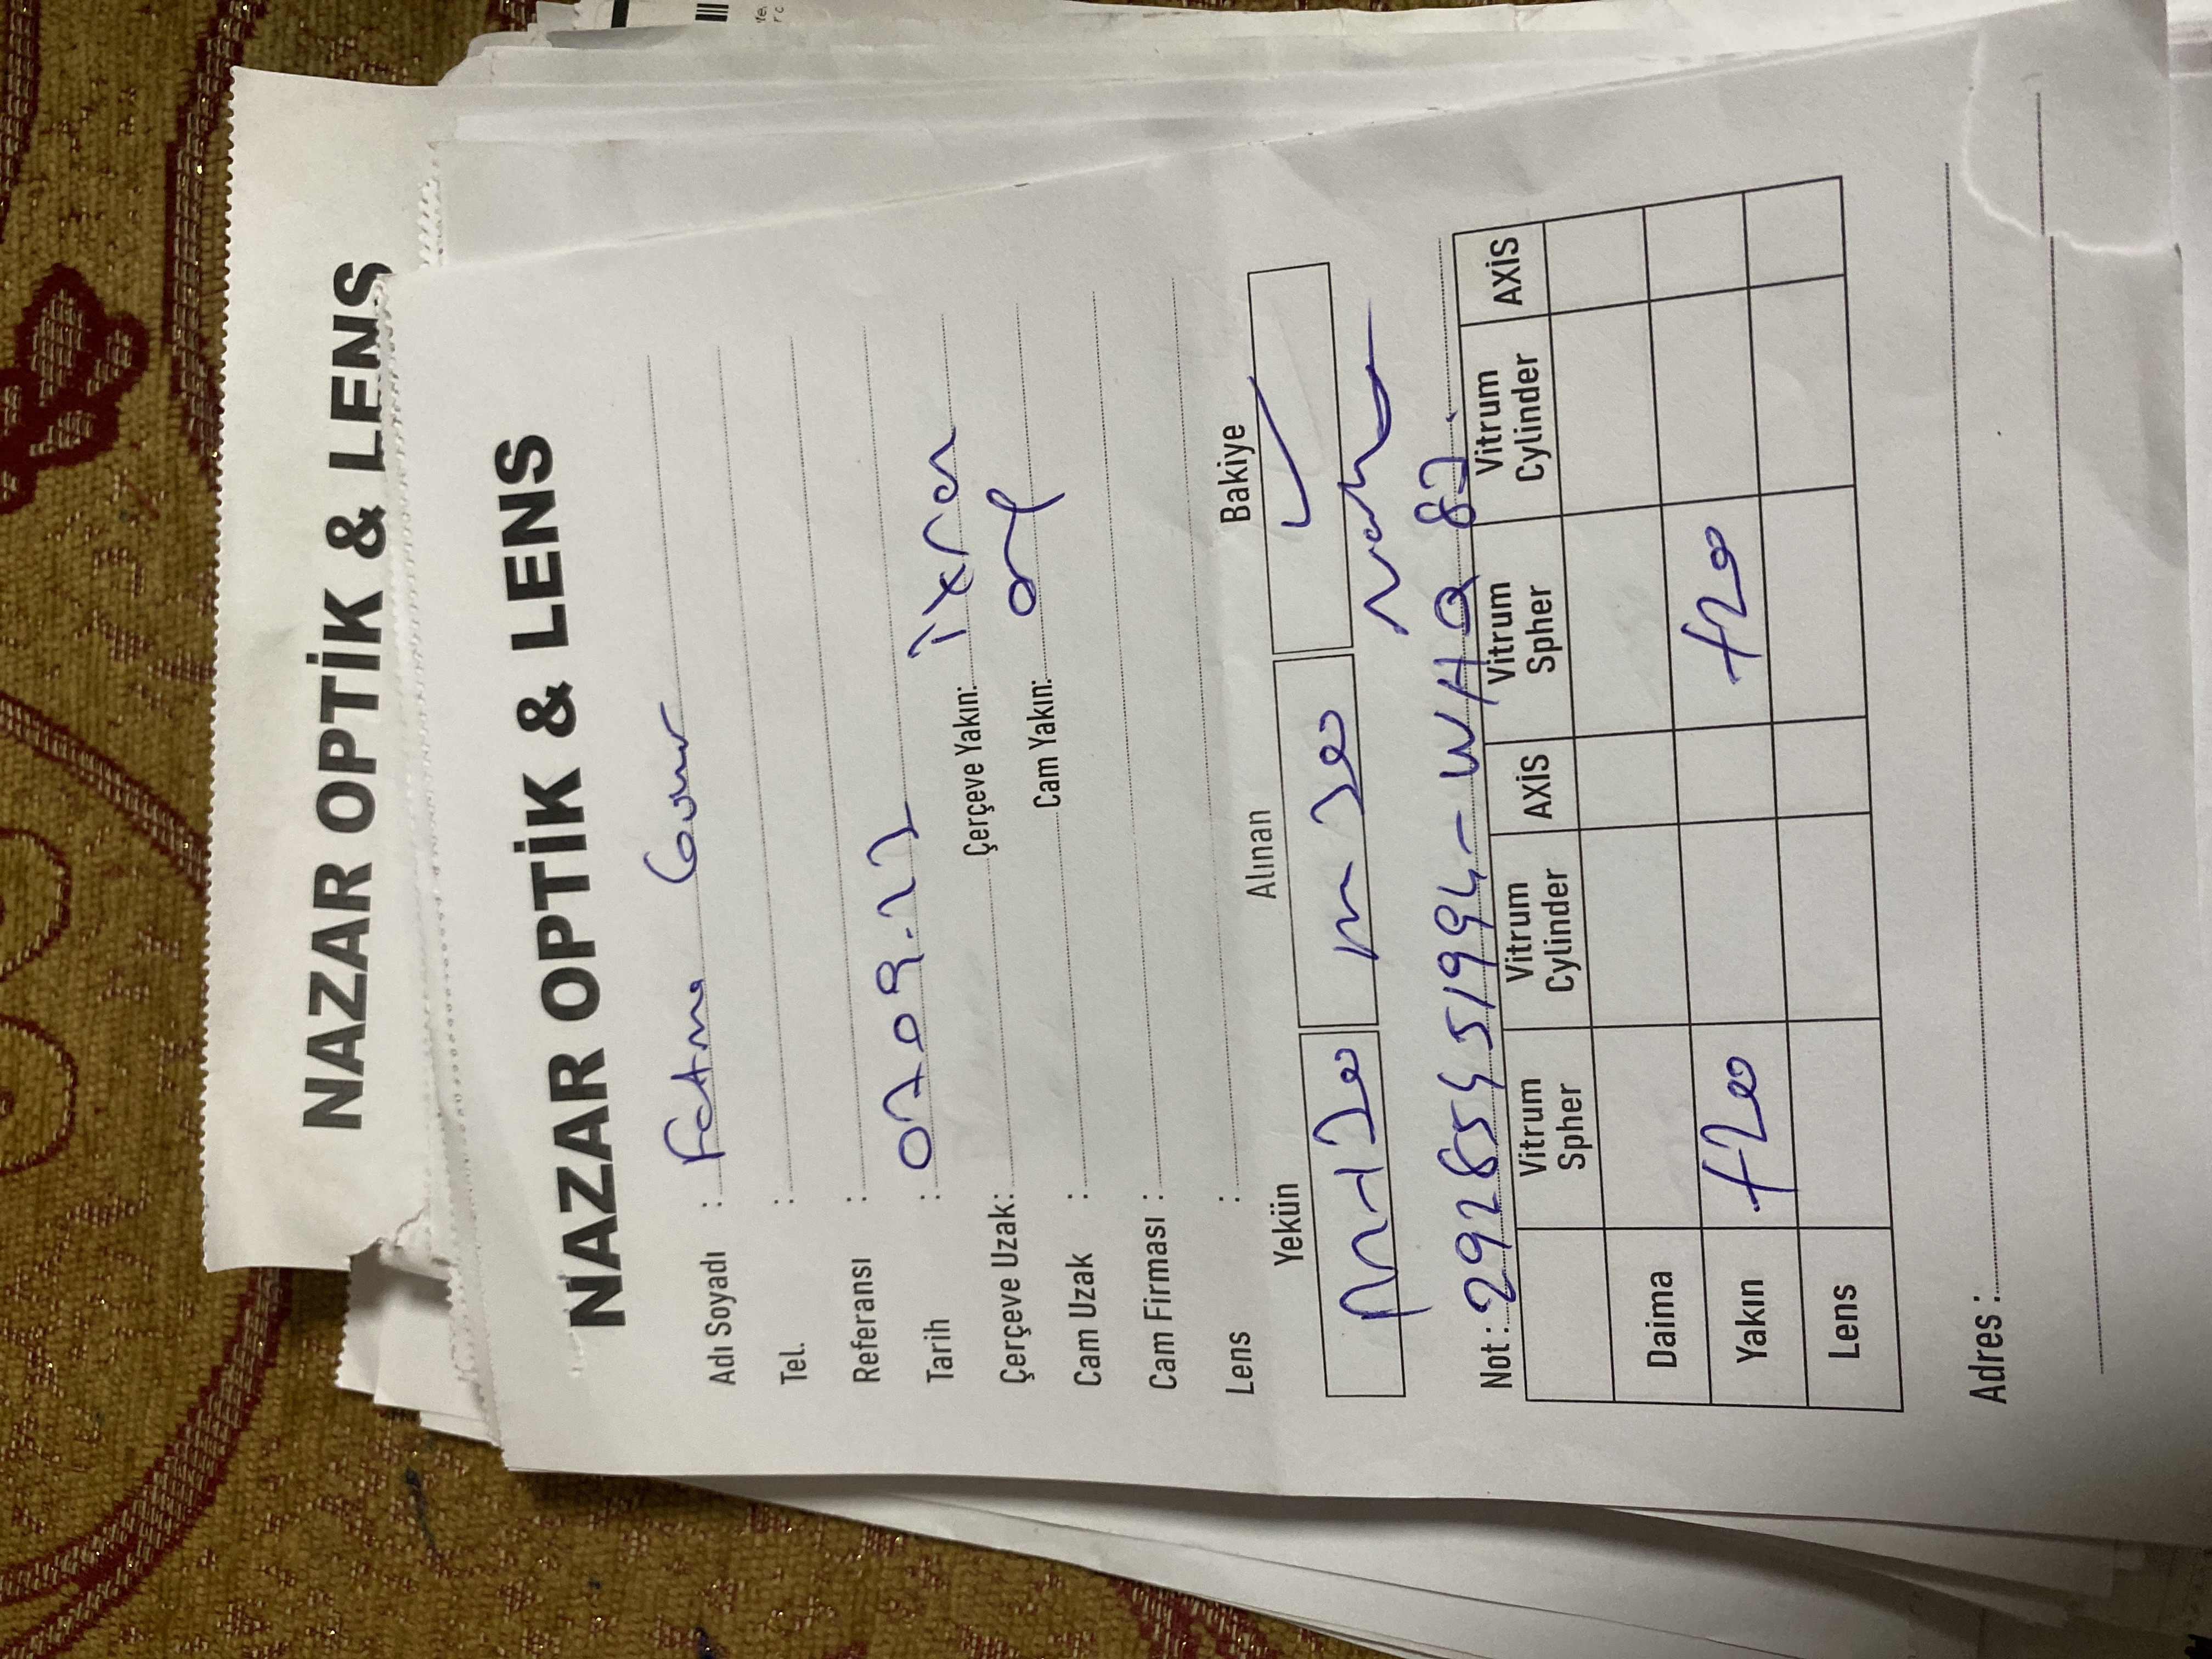 NAZAR OPTİK & LENS
NAZAR OPTİK & LENS
Adı Soyadı : Fatma
Tel. :
Referansı :
Tarih : 0709.22
Çerçeve Uzak: Çerçeve Yakın:
Cam Uzak : Cam Yakın:
Cam Firması :
Lens :
Yekün Alınan Bakiye
Not : 29285451994-WHQ 82.
Vitrum Spher Vitrum Cylinder AXİS Vitrum Spher Vitrum Cylinder AXİS
Daima
Yakın +200 +200
Lens
Adres :